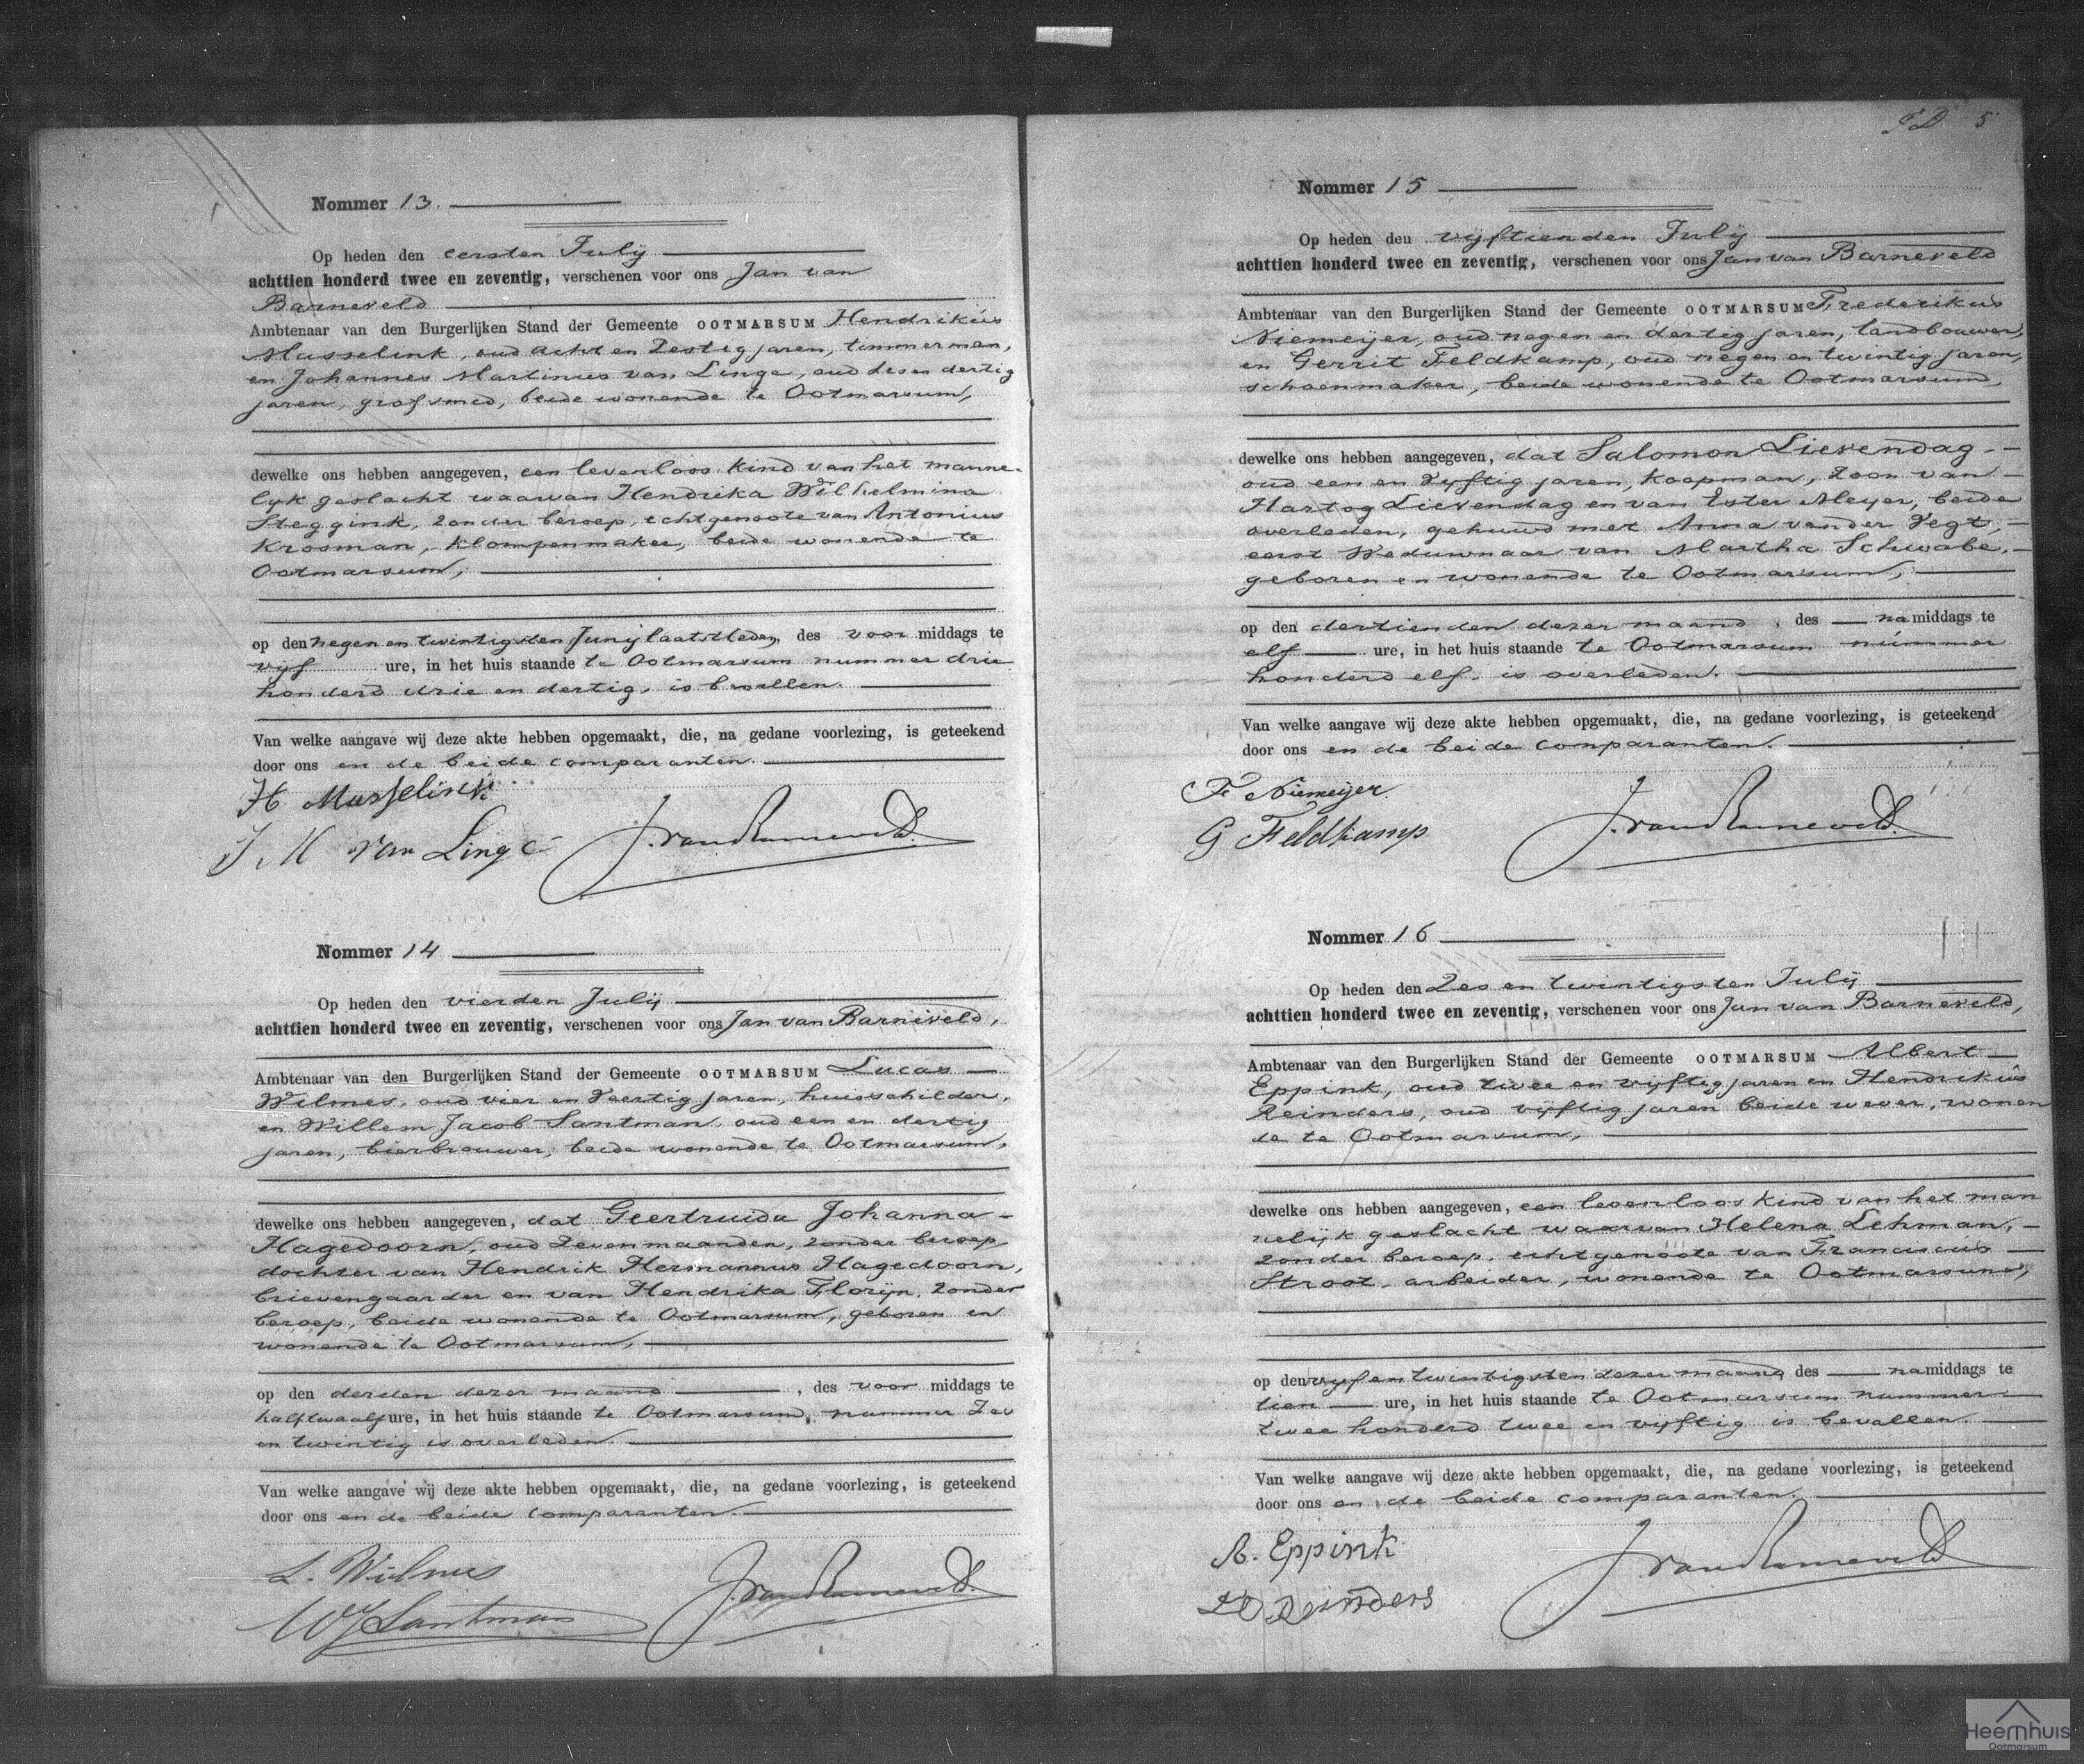 Nommer 13.
Op heden den eersten Julij
achttien honderd twee en zeventig, verschenen voor ons Jan van
Barneveld
Ambtenaar van den Burgerlijken Stand der Gemeente OOTMARSUM Hendrikus
Masselink, oud acht en zestig jaren, timmerman,
en Johannes Martinus van Linge, oud zes en dertig
jaren, grofsmid, beide wonende te Ootmarsum,
dewelke ons hebben aangegeven, een levenloos kind van het manne-
lijk geslacht waarvan Hendrika Wilhelmina
Steggink, zonder beroep, echtgenoote van Antonius
Krosman, klompenmaker, beide wonende te
Ootmarsum,
op den negen en twintigsten Junij laatstleden, des voor middags te
vijf ure, in het huis staande te Ootmarsum nummer drie
honderd drie en dertig, is bevallen.
Van welke aangave wij deze akte hebben opgemaakt, die, na gedane voorlezing, is geteekend
door ons en de beide comparanten.
H Masselink
J M van Linge J. van Barneveld
Nommer 14
Op heden den vierden Julij
achttien honderd twee en zeventig, verschenen voor ons Jan van Barneveld,
Ambtenaar van den Burgerlijken Stand der Gemeente OOTMARSUM Lucas
Wilmes, oud vier en veertig jaren, huisschilder,
en Willem Jacob Santman, oud een en dertig
jaren, bierbrouwer, beide wonende te Ootmarsum,
dewelke ons hebben aangegeven, dat Geertruida Johanna
Hagedoorn, oud zeven maanden, zonder beroep
dochter van Hendrik Hermannus Hagedoorn,
brievengaarder en van Hendrika Florijn, zonder
beroep, beide wonende te Ootmarsum, geboren en
wonende te Ootmarsum,
op den derden dezer maand, des voor middags te
half twaalf ure, in het huis staande te Ootmarsum, nummer zes
en twintig is overleden.
Van welke aangave wij deze akte hebben opgemaakt, die, na gedane voorlezing, is geteekend
door ons en de beide comparanten.
L. Wilmes
WJ Santman J. van Barneveld
5
Nommer 15
Op heden den vijftienden Julij
achttien honderd twee en zeventig, verschenen voor ons Jan van Barneveld
Ambtenaar van den Burgerlijken Stand der Gemeente OOTMARSUM Frederikus
Niemeijer, oud negen en dertig jaren, landbouwer,
en Gerrit Feldkamp, oud negen en twintig jaren,
schoenmaker, beide wonende te Ootmarsum,
dewelke ons hebben aangegeven, dat Salomon Lievendag
oud een en vijftig jaren, koopman, zoon van
Hartog Lievendag en van Ester Meyer, beide
overleden, gehuwd met Anna van der Vegt,
eerst Weduwnaar van Martha Schwabe,
geboren en wonende te Ootmarsum,
op den dertienden dezer maand, des na middags te
elf ure, in het huis staande te Ootmarsum nummer
honderd elf, is overleden.
Van welke aangave wij deze akte hebben opgemaakt, die, na gedane voorlezing, is geteekend
door ons en de beide comparanten.
F. Niemeijer
G Feldkamp J. van Barneveld
Nommer 16
Op heden den zes en twintigsten Julij
achttien honderd twee en zeventig, verschenen voor ons Jan van Barneveld,
Ambtenaar van den Burgerlijken Stand der Gemeente OOTMARSUM Albert
Eppink, oud twee en vijftig jaren en Hendrikus
Reinders, oud vijftig jaren beide wever, wonen
de te Ootmarsum,
dewelke ons hebben aangegeven, een levenloos kind van het man
nelijk geslacht waarvan Helena Lehman,
zonder beroep, echtgenoote van Franciscus
Stroot, arbeider, wonende te Ootmarsum,
op den vijf en twintigsten dezer maand des na middags te
tien ure, in het huis staande te Ootmarsum nummer
twee honderd twee en vijftig is bevallen.
Van welke aangave wij deze akte hebben opgemaakt, die, na gedane voorlezing, is geteekend
door ons en de beide comparanten.
A. Eppink
H Reinders J. van Barneveld
Heemhuis
Ootmarsum